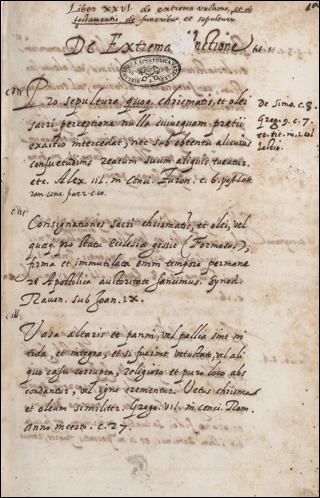 Liber XXVI. de extrema unctione, et de
testamentis, de funeribus et sepulturis
De Extrema Unctione tit. I.
Pro sepultura quoq. chrismatis, et olei
sacri perceptione nulla cuiusquam pretii
exactio intercedat, nec sub obtentu alicuius
consuetudinis reatum suum aliquis tueatur.
etc. Alex. III. in Conci. Turon. c. 6. post Lat
De Simo. c. 8.
Greg. 9. c. 7.
eo. tit. in. 1. col
lectio.
Consignationes sacri chrismatis, et olei, vel
quaeq. pro statu Ecclesiae gessit (Formosus,)
firma et immutilata omni tempore permane
re Apostolica auctoritate sancimus. Synod.
Raven. sub Joan. IX.
Vasa altaris et panni, vel pallia sint ni
tida, et integra, et si fuerint vetustate, vel ali
quo casu corrupta, religioso et puro loco abs
condantur, vel igne crementur. Vetus chrisma
et oleum similiter. Grego. VII. in conci. Rom.
Anno incerto. c. 27.